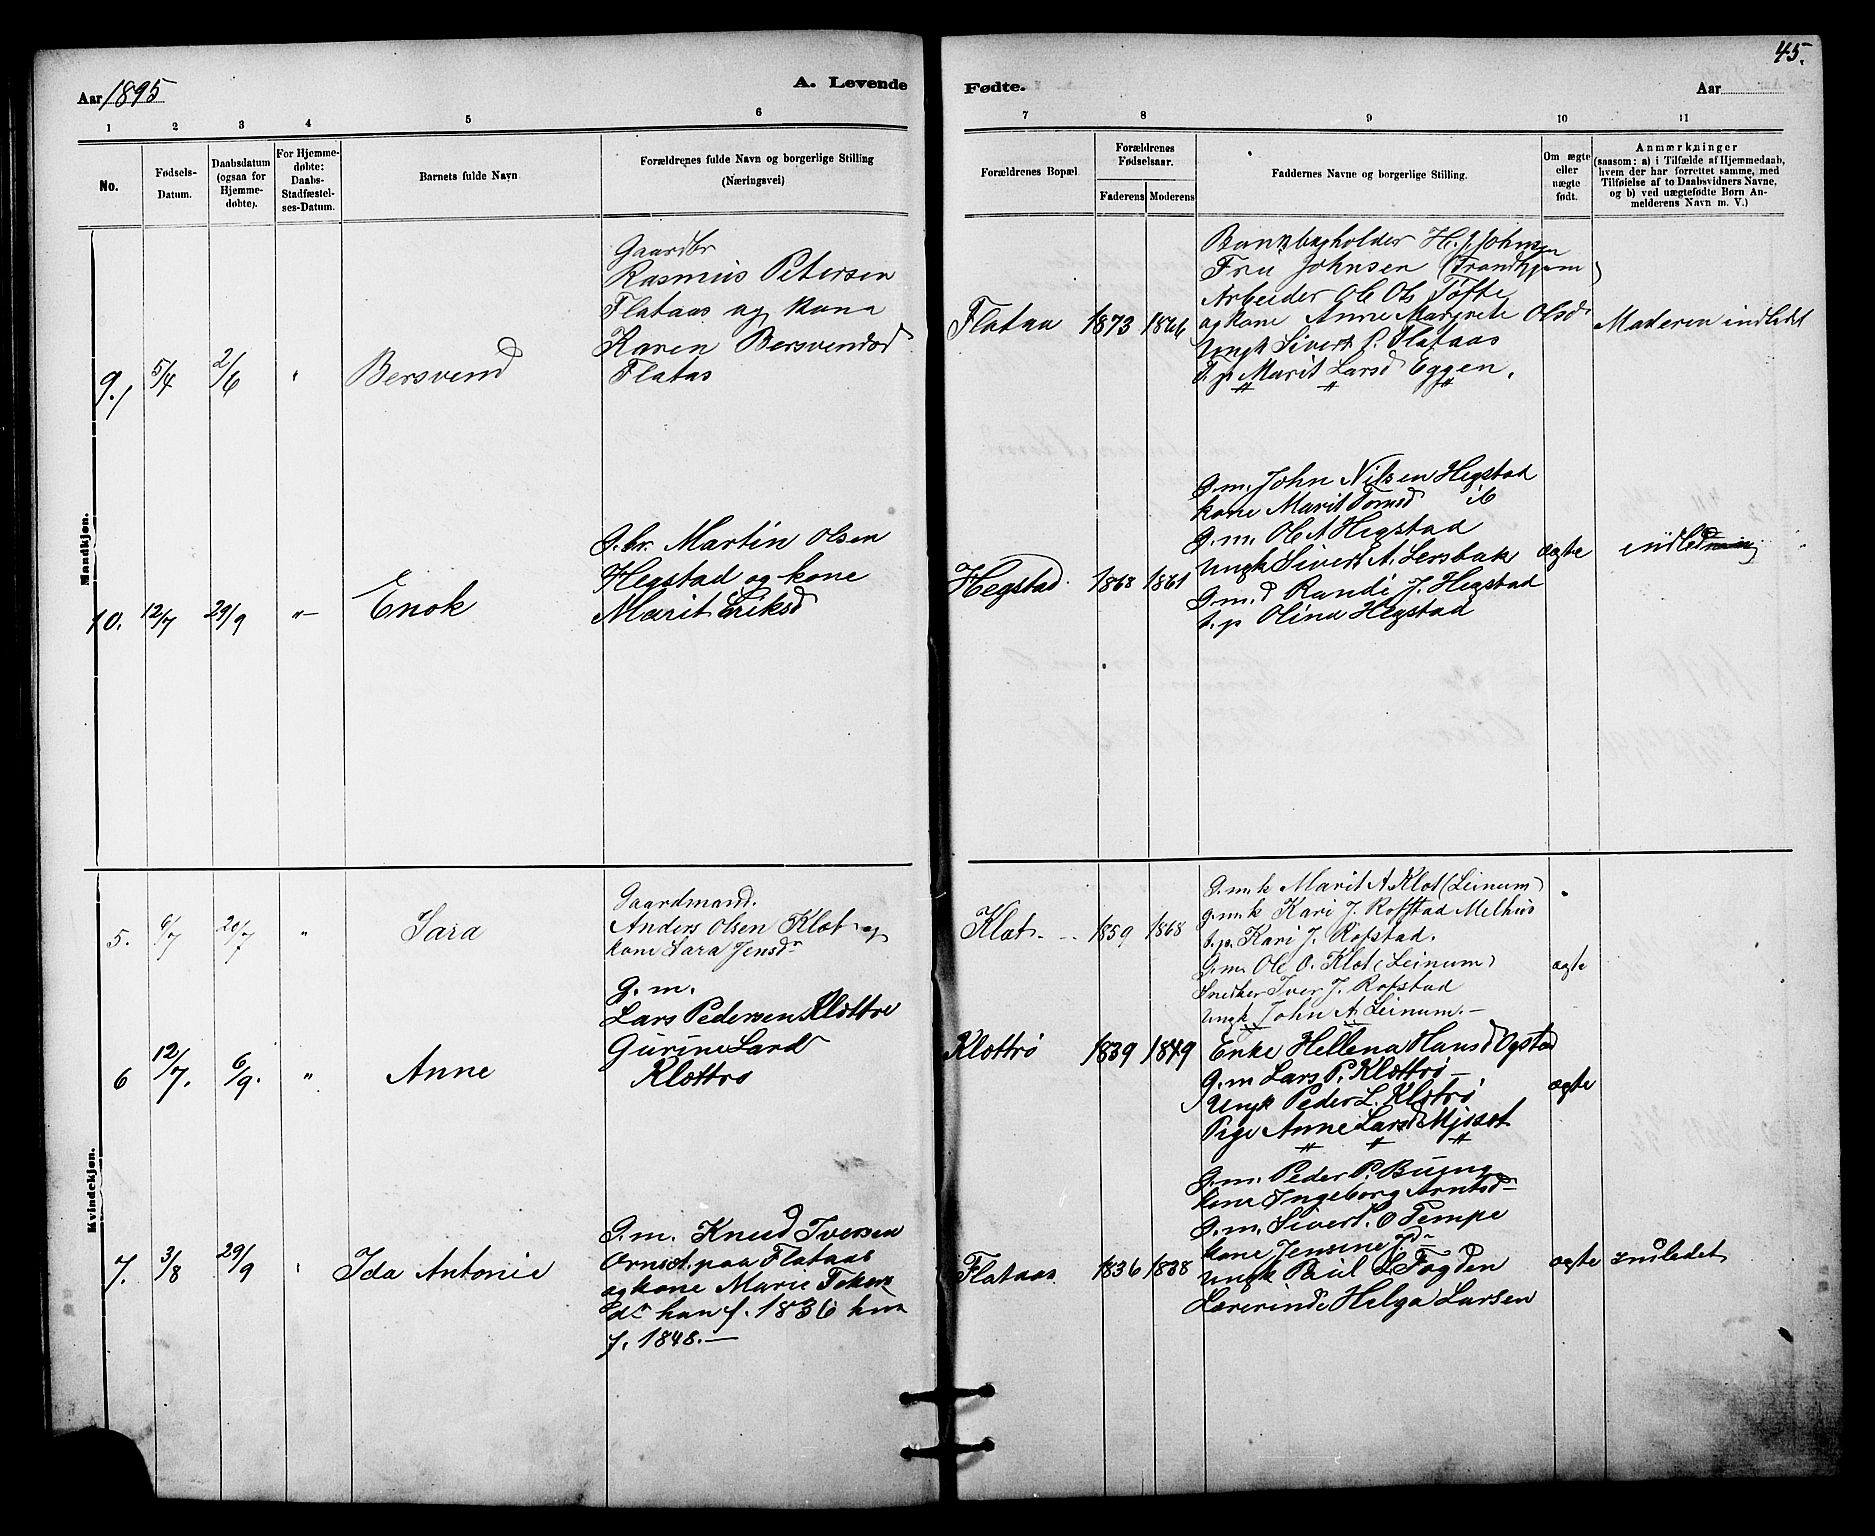 45.
Aar 1895
A. Levende Fødte.
Aar
1 2 3 4 5 6 7 8 9 10 11
No.
Fødsels-
Datum.
Daabsdatum
(ogsaa for
Hjemme-
døbte).
For Hjemme-
døbte:
Daabs-
Stadfæstel-
ses-Datum.
Barnets fulde Navn
Forældrenes fulde Navn og borgerlige Stilling
(Næringsvei)
Forældrenes Bopæl.
Forældrenes
Fødselsaar.
Faderens Moderens
Faddernes Navne og borgerlige Stilling.
Om ægte
eller
uægte
født.
Anmærkninger
(saasom: a) i Tilfælde af Hjemmedaab,
hvem der har forrettet samme, med
Tilføielse af to Daabsvidners Navne,
og b) ved uægtefødte Børn An-
melderens Navn m. V.)
Mandkjøn.
9.
5/4
2/6
"
Bersvend
Gaardbr
Rasmus Petersen
Flataas og kone
Karen Bersvendsd
Flatas
Flataa
1873
1866
H. J. Johnsen
Fru Johnsen (Trondhjem)
Arbeider Ole Ols Tofte
og kone Anne Margrete Olsdr
Ungk Sivert P. Flataas
t. p Marit Larsd Eggen.
Moderen indledet
10.
12/7
29/9
"
Enok
G. br. Martin Olsen
Hegstad og kone
Marit Eriksd
Hegstad
1868
1861
G. m. John Nilsen Hegstad
kone Marit Tomsd ib
G. m. Ole A Hegstad
Ungk Sivert A. Lersbak
G. m. d Randi J. Hegstad
t. p Olina Hegstad
ægte
Kvindekjøn.
5.
6/7
20/7
"
Sara
Gaardmand.
Anders Olsen Kløt og
kone Sara Jensdr
Kløt
1859
1868
G. m. k Marit A Kløt (Leinum)
g. m. k Kari J. Rofstad Melhus
t. p. Kari J. Rofstad.
G. m. Ole O. Kløt (Leinum)
Snedker Iver J. Rofstad
Ungk John A Leinum.
ægte
6
12/7.
6/9.
"
Anne
G. m.
Lars Pedersen Kløttrø
Gurine Larsd
Kløttrø
Kløttrø
1839
1849
Enke Hellena Hansd Ogstad
G. m Lars P. Kløttrø
Ungk Peder L. Kløtrø
Pige Anne Larsd Mjøset
ægte
7.
3/8
29/9
"
Ida Antonie
G. m. Knud Iversen
paa Flataas
og kone Marie
han f. 1836 hun
f. 1848.
Flataas
1836
1838
G. m. Peder P. Buung
kone Ingeborg Arntsdr
G. m. Sivert O Tempe
kone Jensine
Ungk Paul L Fogden
Lærerinde Helga Larsen
ægte
indledet